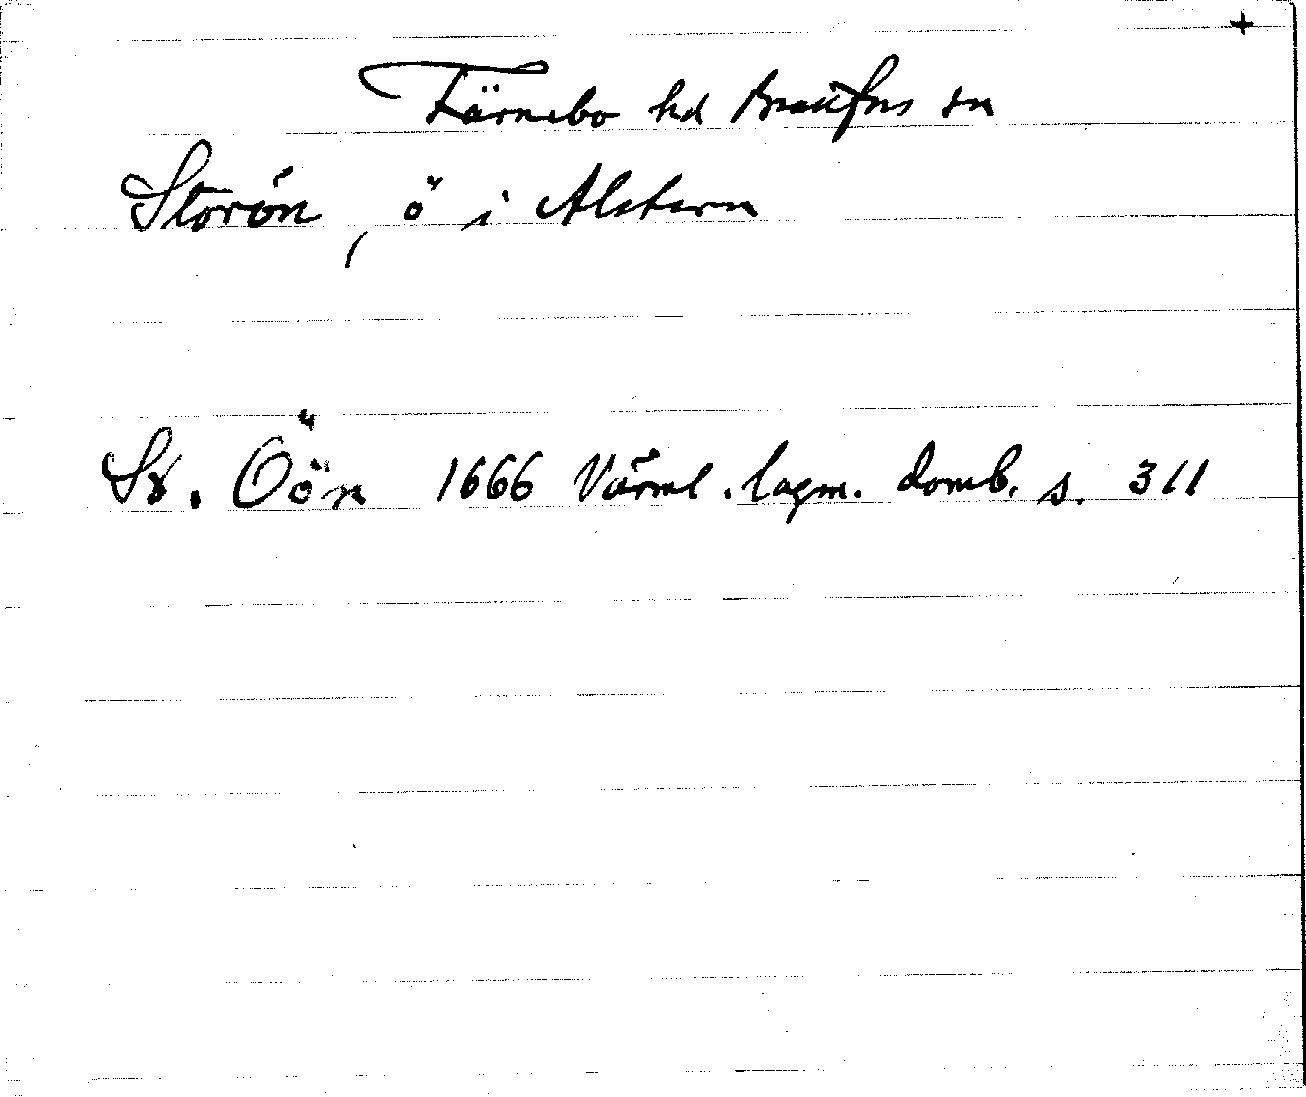 +
Färnebo hd Brattfors sn
Storön, ö i Alstern
St. Öön 1666 Värml. lagm. domb. s. 311